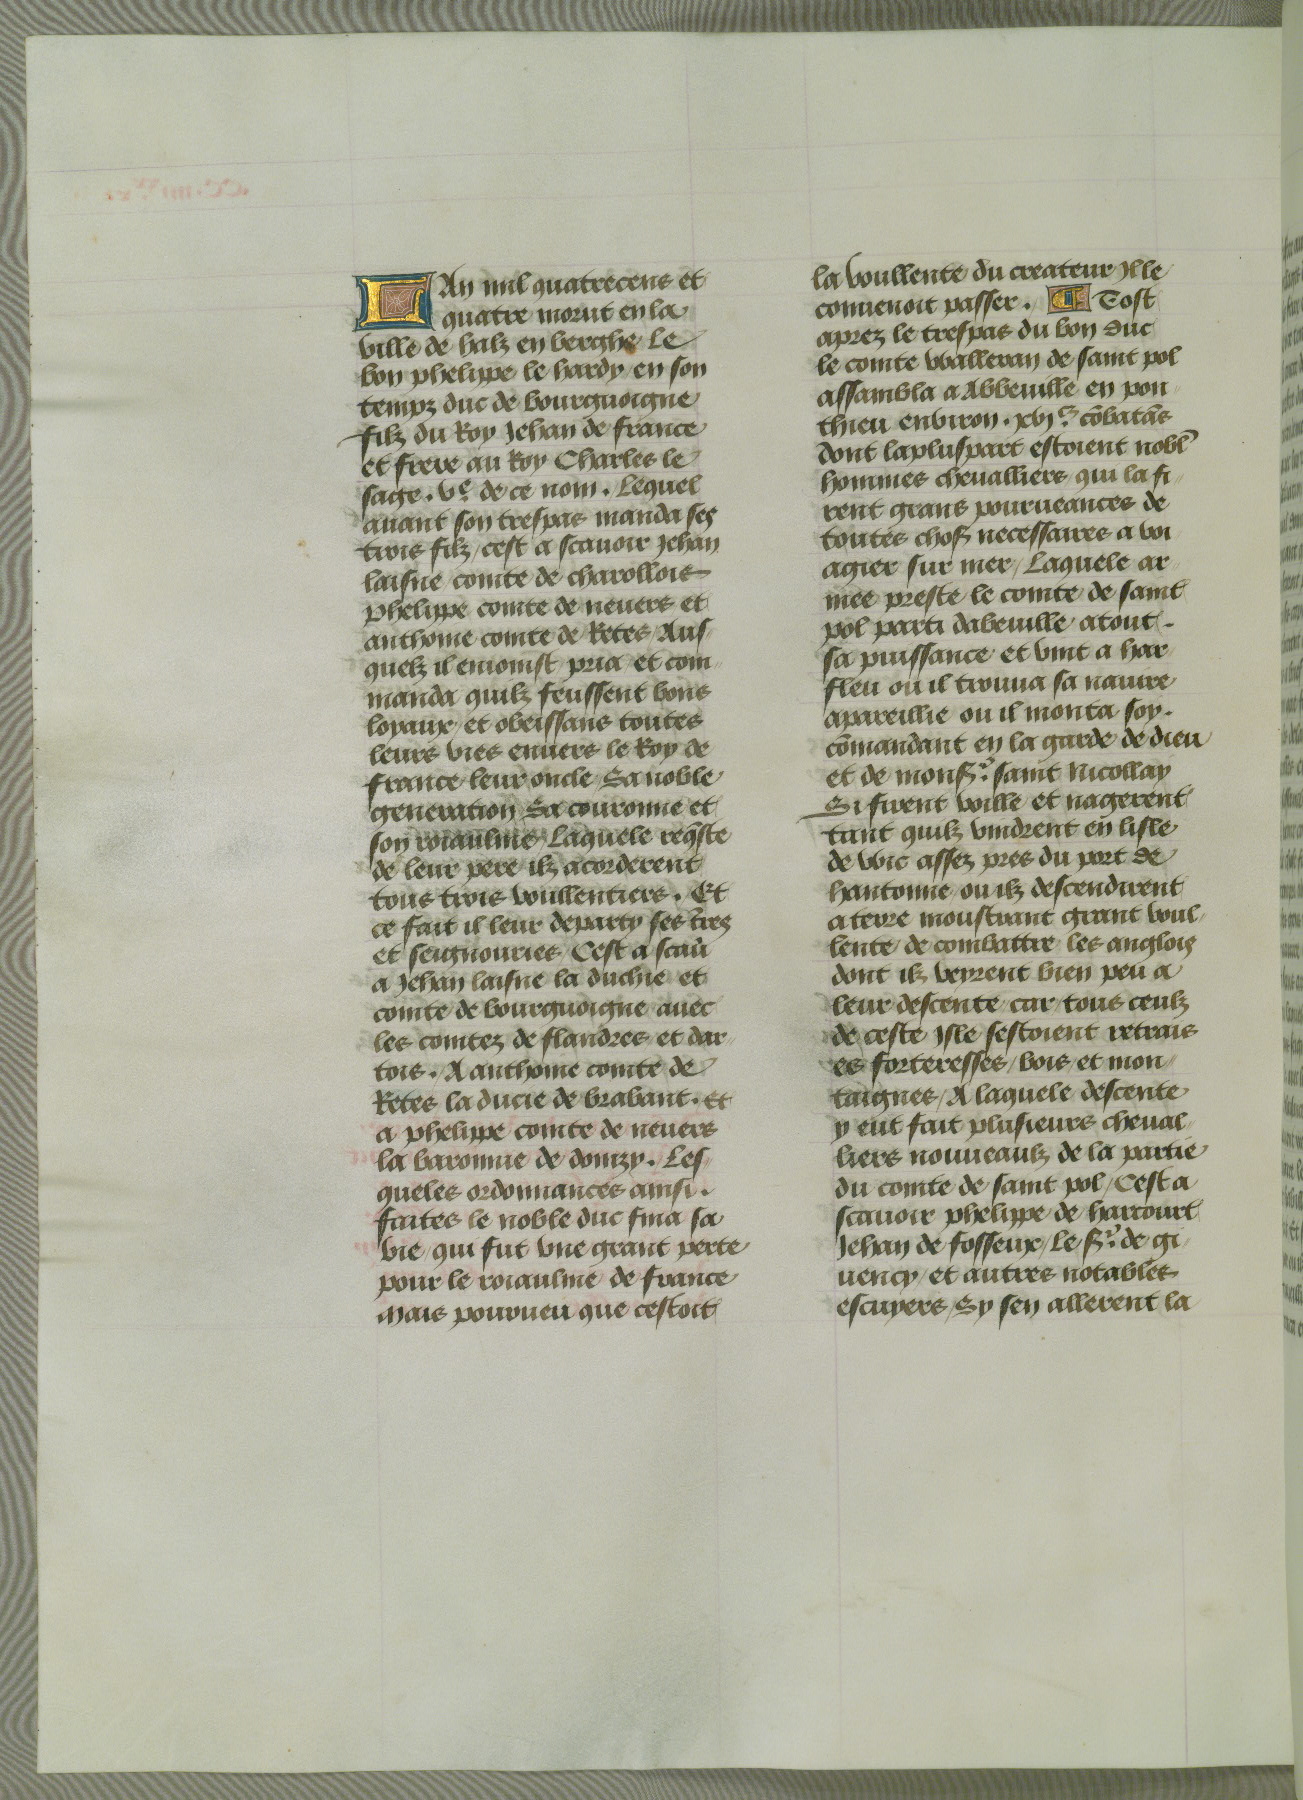 LAn mil quatrecens et
quatre morut en la
ville de halz en berghe le
bon phelippe le hardy en son
tempz duc de bourguoigne
filz du Roy Jehan de france
et frere au Roy Charles le
sage. vᵉ. de ce nom. Lequel
auant son trespas manda ses
trois filz / cest a scauoir Jehan
laisne comte de charollois
Phelippe comte de neuers et
anthoine comte de Retes Aus
quelz il enionist pria et com
manda quilz feussent bons
loyaux et obeissans toutes
leurs vies enuers le Roy de
france leur oncle Sa noble
generation Sa couronne et
son roiaulme / Laquele reqste
de leur pere ilz acorderent
tous trois voullentiers. Et
ce fait il leur departy ses tres
et seignouries Cest a scau
a Jehan laisne la duchie et
comte de bourguoigne auec
les comtez de flandres et dar
tois. A anthoine comte de
Retes la ducie de brabant. et
a phelippe comte de neuers
la baronnie de donzy. Les
queles ordonnances ainsi.
faites le noble duc fina sa
vie qui fut vne grant perte
pour le roiaulme de france
Mais pourueu que cestoit
la voullente du createur Jlle
conuenoit passer. ¶ Tost
aprez le trespas du bon duc
le comte walleran de saint pol
assambla a Abbeuille en pon
thieu enuiron. xvjᶜ. cōbatās
dont la pluspart estoient nobl
hommes cheualliers qui la fi
rent grans pourueances de
toutes chos necessaires a voi
agier sur mer / Laquele ar
mee preste le comte de saint
pol parti dabeuille atout.
sa puissance et vint a har
fleu ou il trouua sa nauire
apareillie ou il monta soy.
cōmandant en la garde de dieu
et de monsʳ. saint Nicollay
Si firent voille et nagerent
tant quilz vindrent en lisle
de voic assez pres du port de
hantonne ou ilz descendirent
a terre moustrant grant voul
lente de combattre les anglois
dont ilz veyrent bien peu a
leur descente car tous ceulz
de ceste Jsle sestoient retrais
es forteresses / bois et mon
taignes / A laquele descente
y eut fait plusieurs cheual
liers nouueaulz de la partie
du comte de saint pol / Cest a
scauoir phelippe de harcourt
Jehan de fosseux / Le sʳ. de gi
uency et autres notables
escuyers / Sy sen allerent la